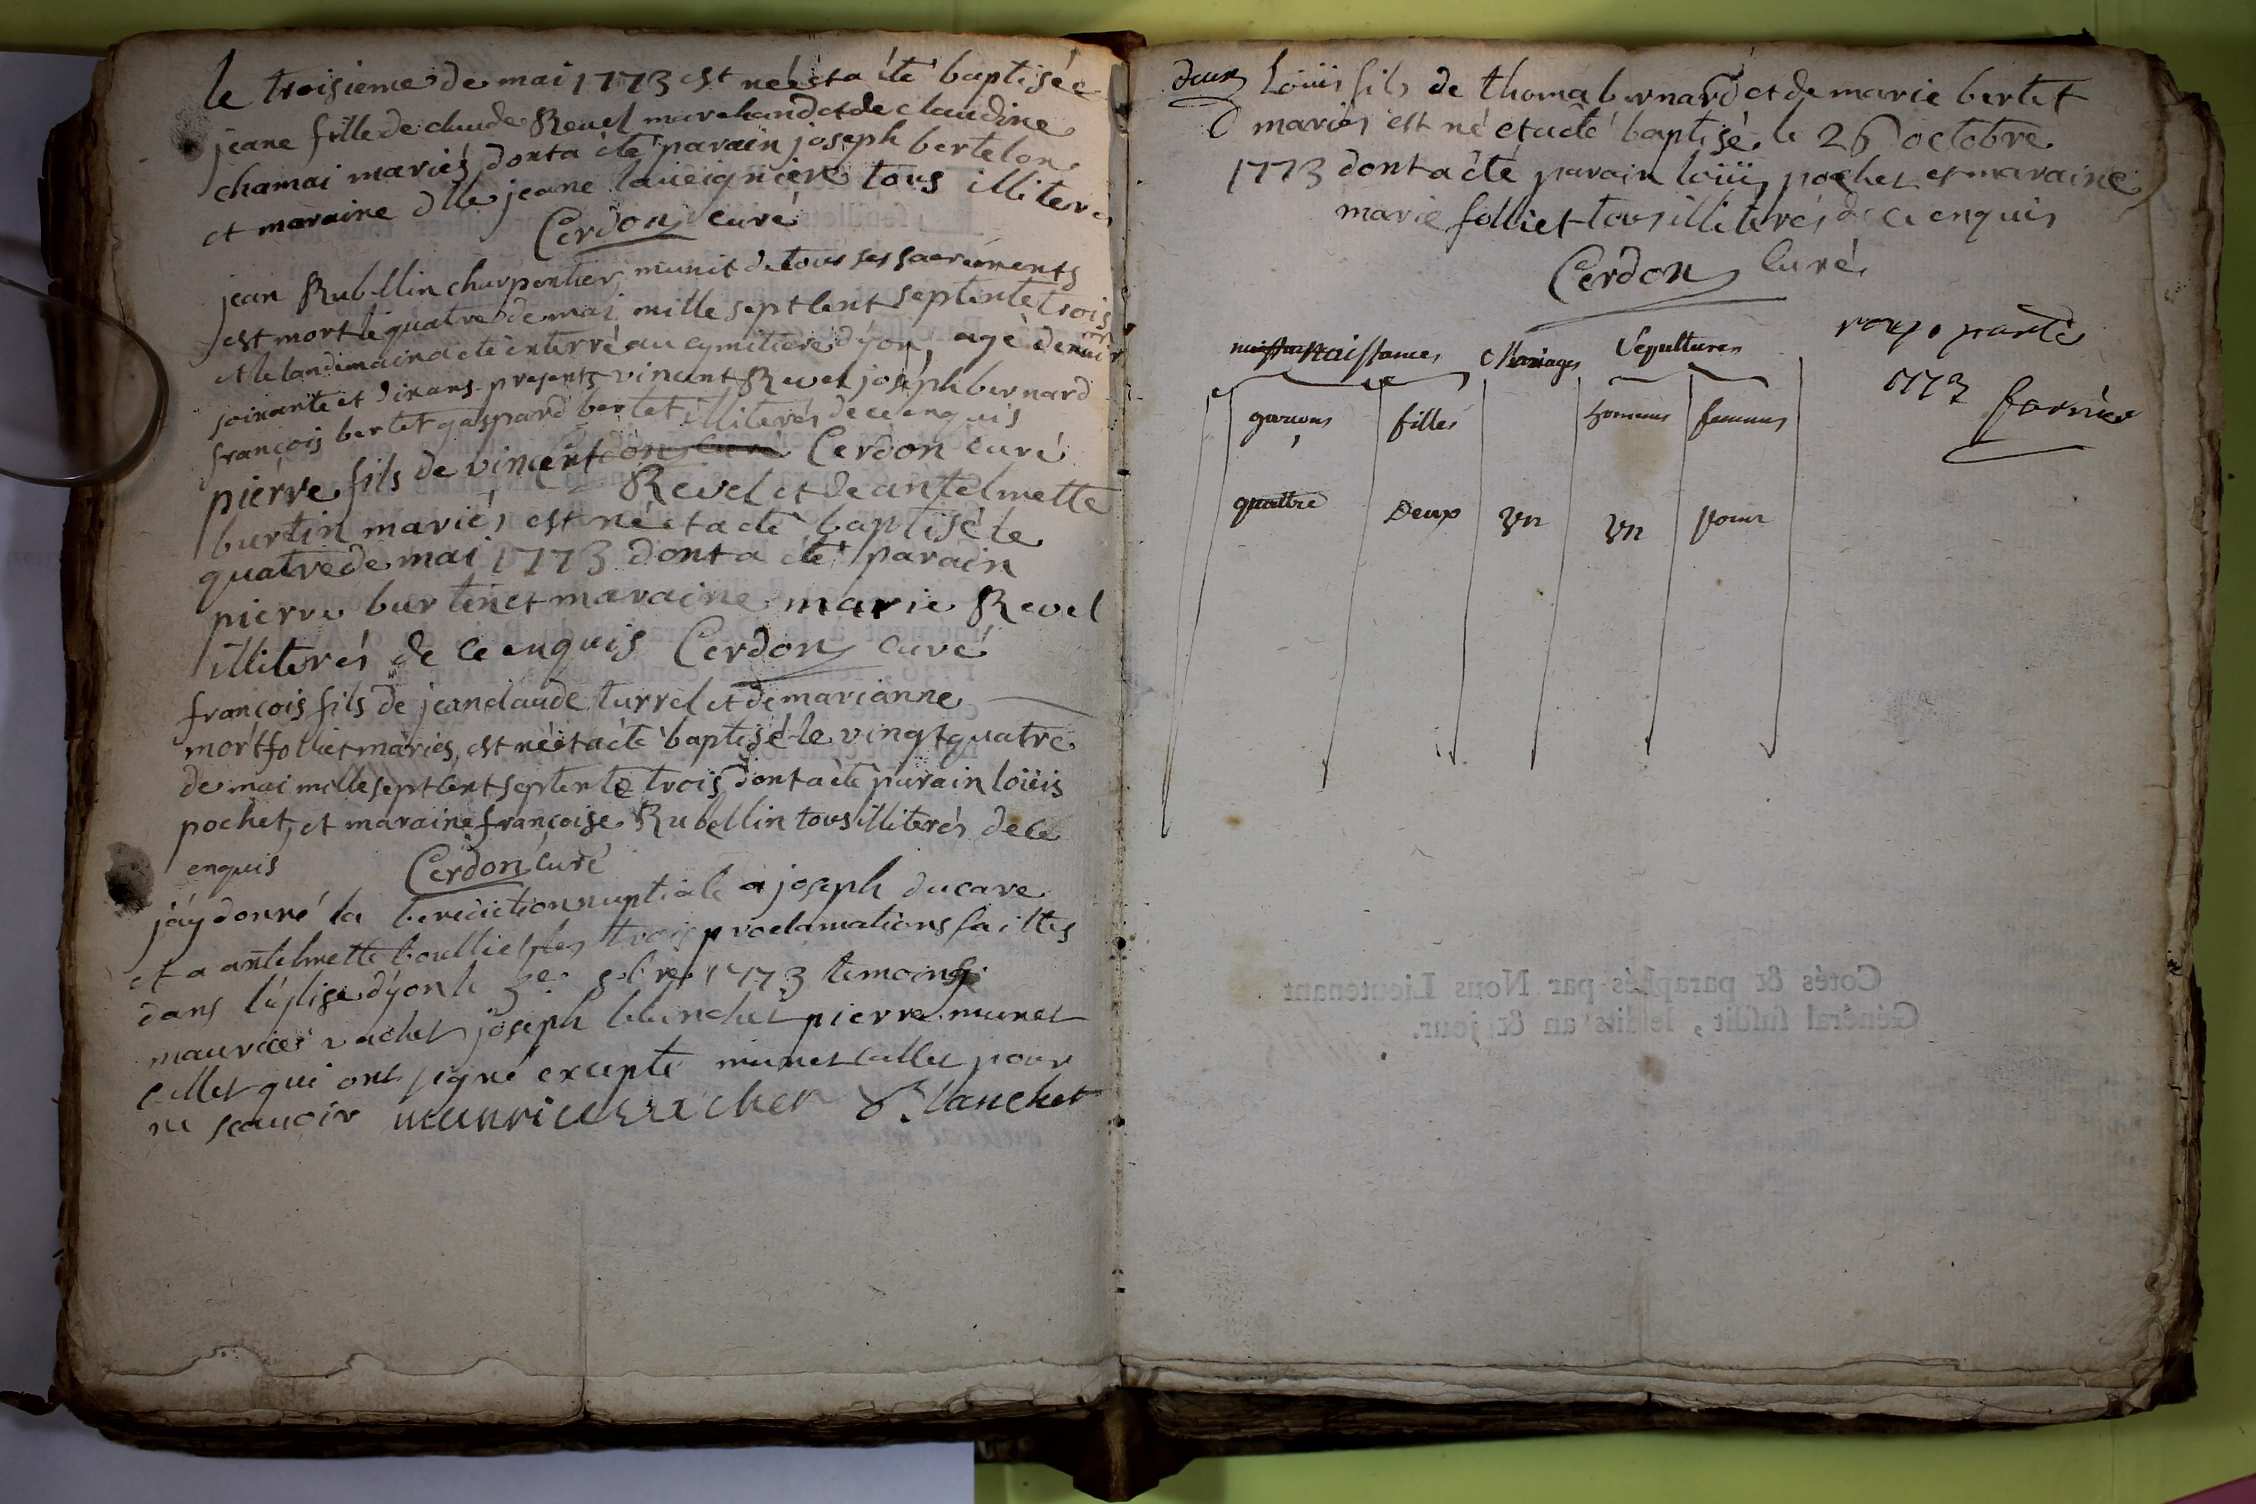 le troisieme de mai 1773 est née et a été baptisée
jeane fille de claude Revel marchand et de claudine
chamai mariés dont a été parain joseph bertelon
et maraine dlle jeane tous illiterés
Cerdon curé
jean Rubellin charpentier munit de tous ses sacrements
est mort le quatre de mai mille sept cent septente trois
et le landemain a été enterré au cymitiere d'yon, agé d'environ
soixante et dix ans presents vincent Revel joseph bernard
françois bertet gaspard bertet illiterés de ce enquis
Cerdon curé
pierre fils de vincent
Revel et de antelmette
burtin mariés est né et a été baptisé le
quatre de mai 1773 dont a été parain
pierre burtin et maraine marie Revel
illiterés de ce enquis Cerdon curé
françois fils de jean claude turrel et de marianne
mortfolliet mariés, est né et a été baptisé le vingt quatre
de mai mille sept cent septente trois dont a été parain loüis
pochet, et maraine françoise Rubellin tous illiterés de ce
enquis Cerdon curé
j'ay donné la benediction nuptiale a joseph ducare
et a antelmette les trois proclamations faittes
dans l'eglise d'yon le 1773 temoins
maurice joseph blanchet pierre munet
qui ont signé excepté munet pour
ne scavoir Blanchet
deux Loüis fils de thoma bernard et de marie bertet
mariés est né et a été baptisé le 26 octobre
1773 dont a été parain loüis pochet et maraine
marie folliet tous illiterés de ce enquis
Cerdon Curé
naissances Mariages Sepultures
garçons filles hommes femmes
quattre Deux Un Un
1773